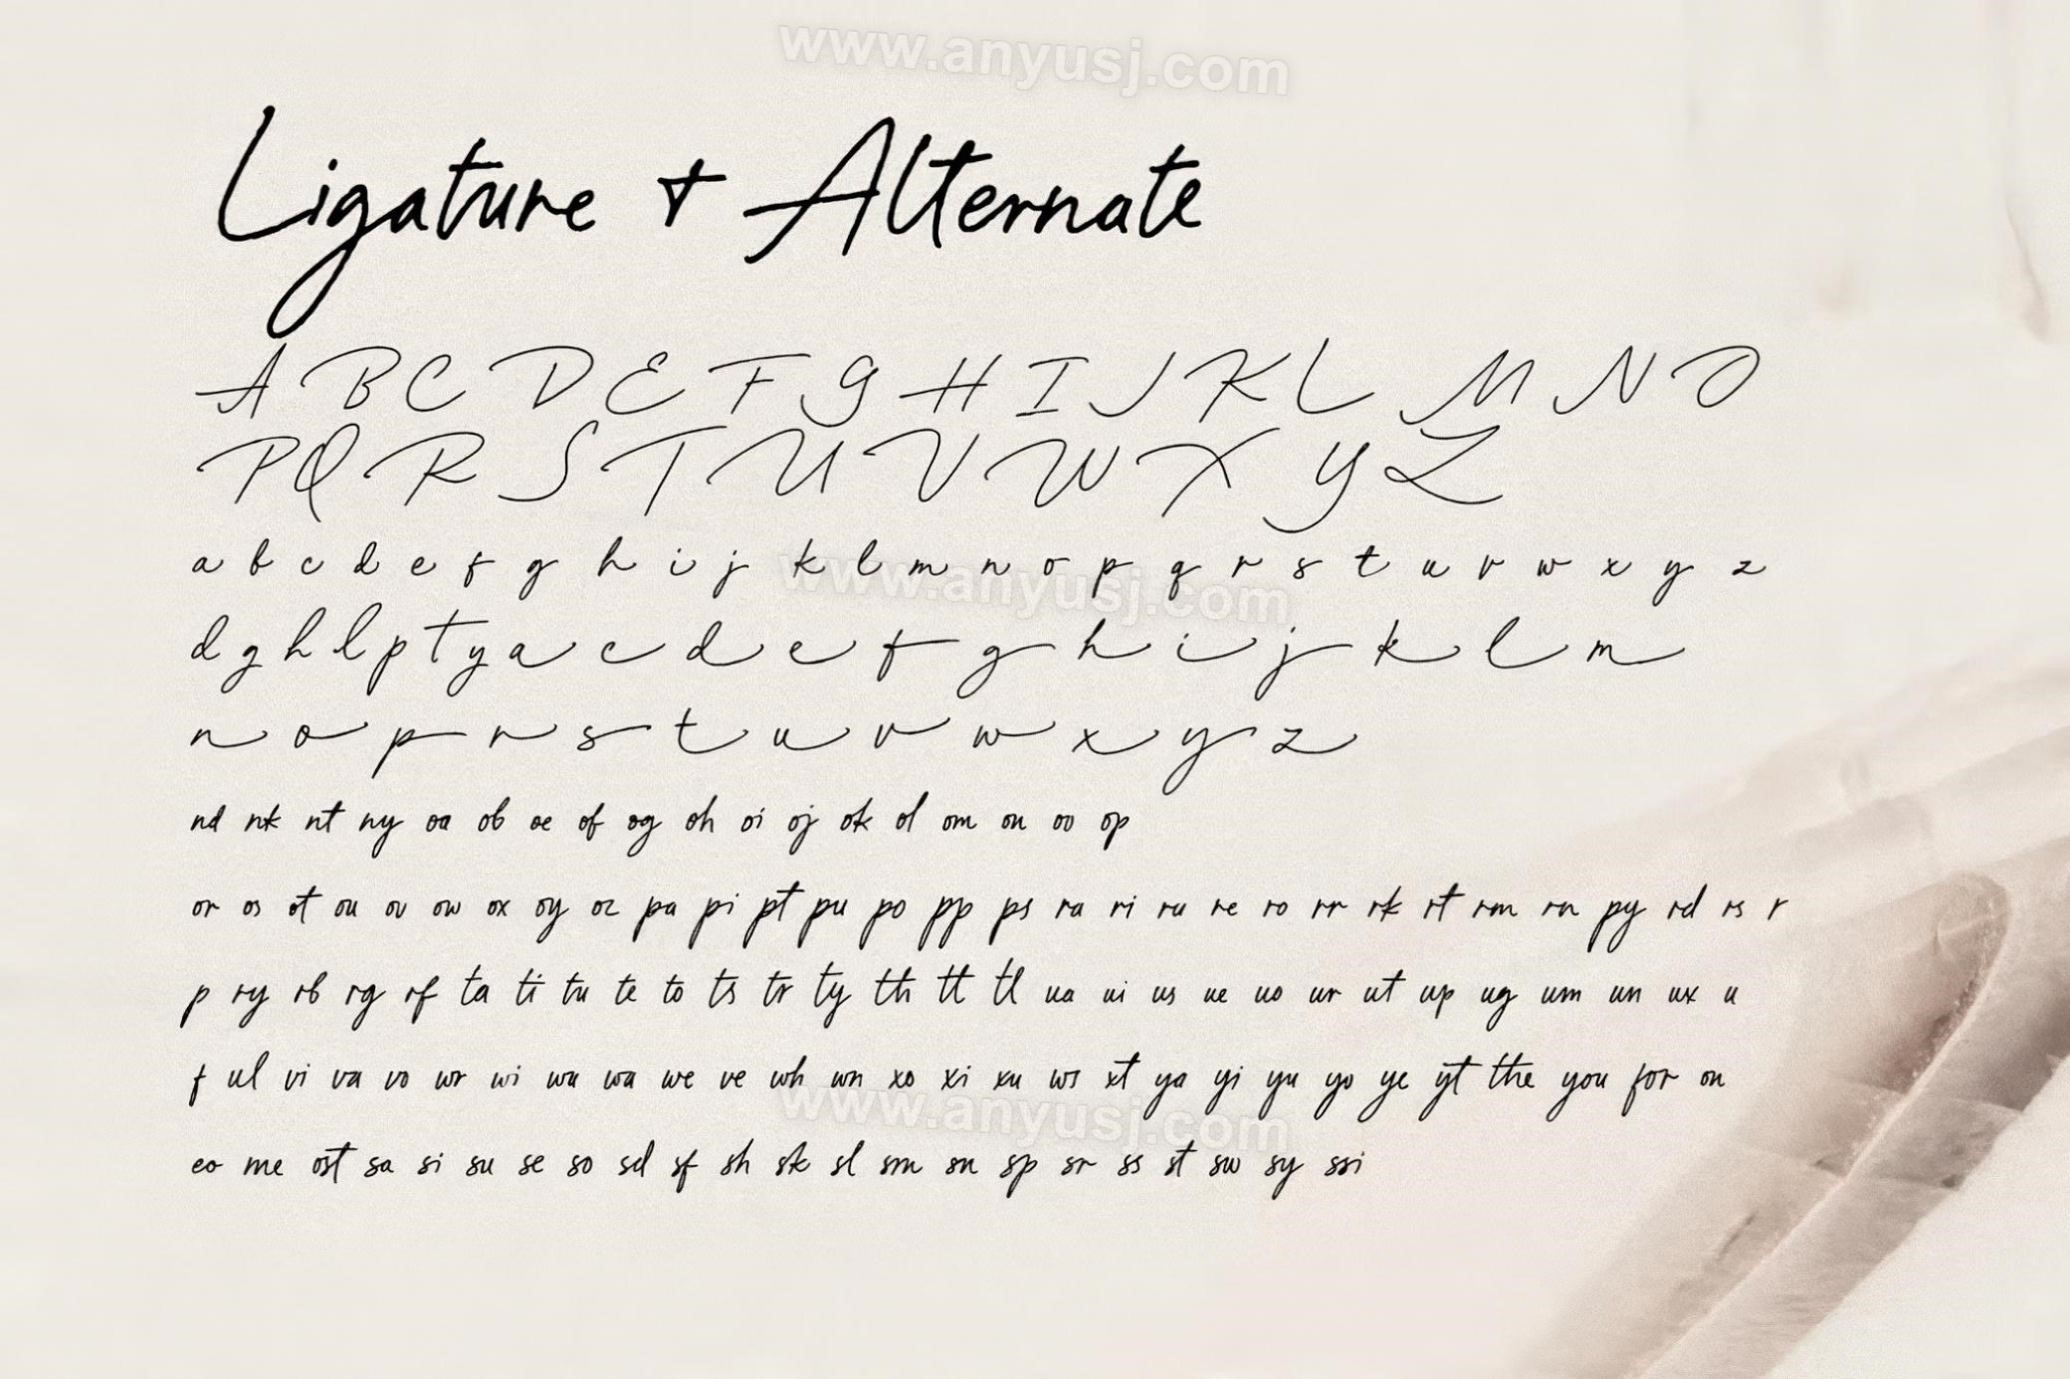 www.anyusj.com
Ligature + Alternate
A B C D E F G H I J K L M N O
P Q R S T U V W X Y Z
a b c d e f g h i j k l m n o p q r s t u v w x y z
www.anyusj.com
d g h l p t y a c d e f g h i j k l m
n o p r s t u v w x y z
nd nk nt ny oa ob oe of og oh oi oj ok ol om on oo op
or os ot ou ov ow ox oy oz pa pi pt pu po pp ps ra ri ru re ro rr rk rt rm rn py rd rs r
p ry rb rg rf ta ti tu te to ts tr ty th tt tl ua ui us ue uo ur ut up ug um un ux u
f ul vi va vo wr wi wu wa we ve wh wn xo xi xu ws xt ya yi yu yo ye yt the you for on
www.anyusj.com
eo me ost sa si su se so sd sf sh sk sl sm sn sp sr ss st sw sy ssi